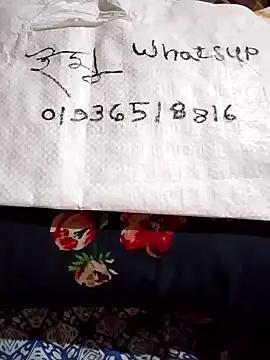 ইমু Whatsup
01936518816